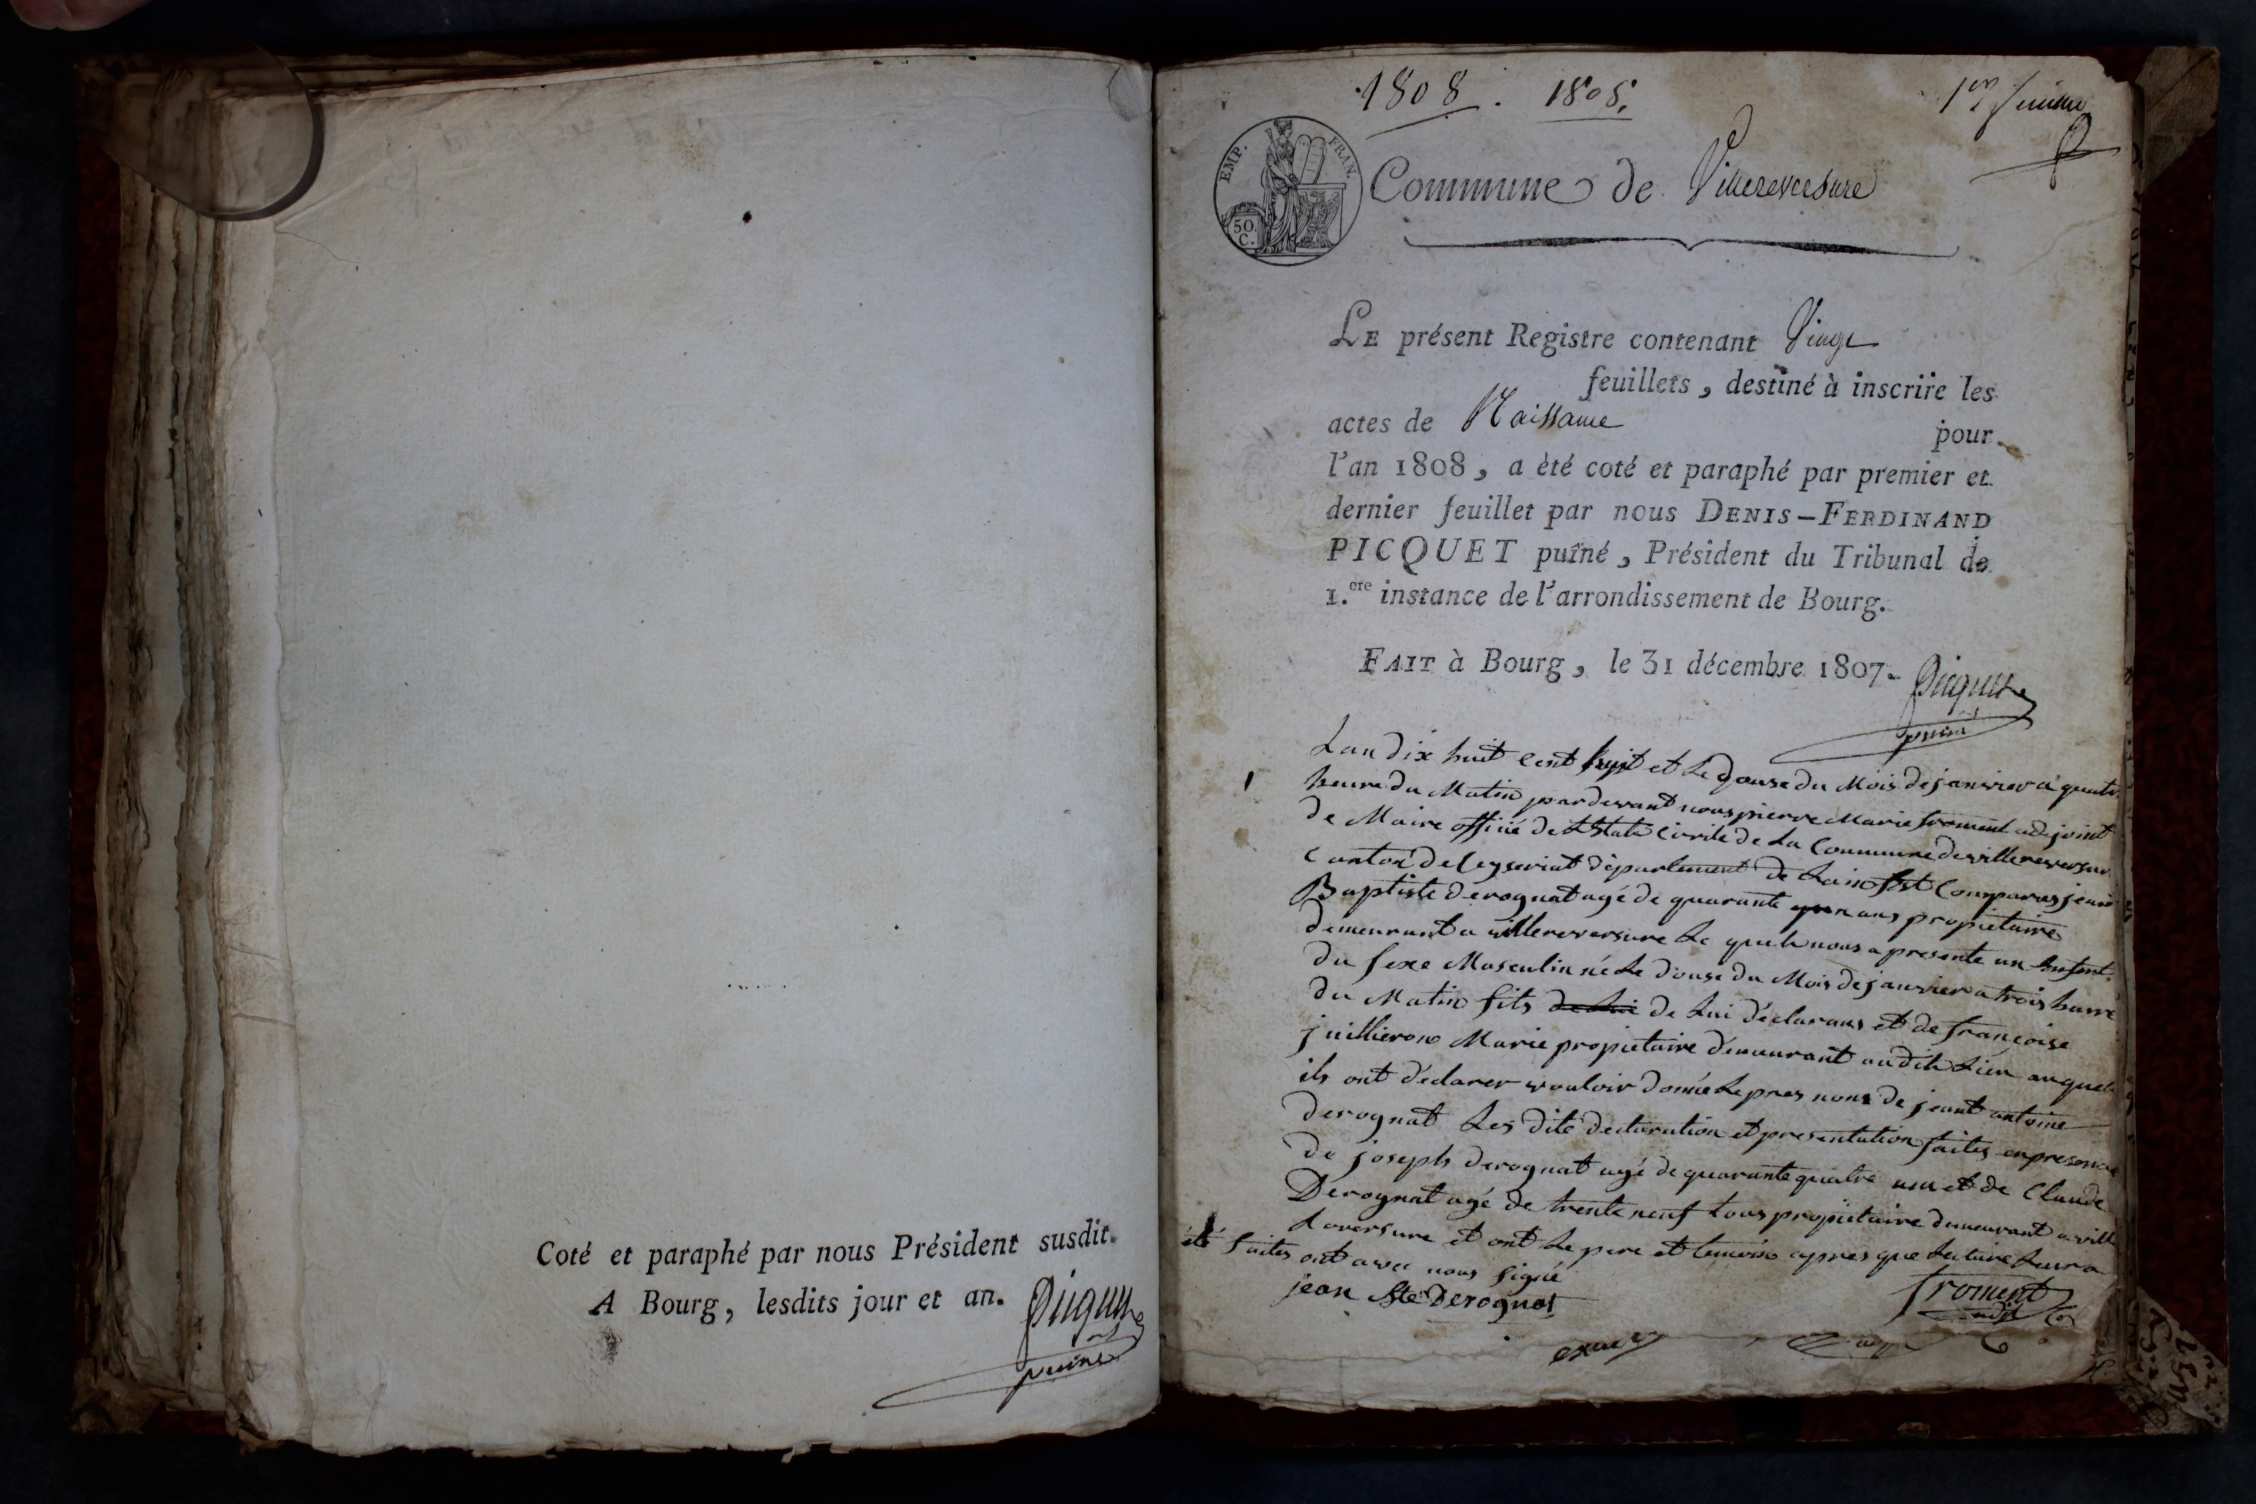 Coté et paraphé par nous Président susdit.
A Bourg, lesdits jour et an. Picquet
puiné
1808. 1808.
1er feuillet
EMP. FRAN.
50 C.
Commune de Villereversure
LE présent Registre contenant Vingt
feuillets, destiné à inscrire les
actes de Naissance pour
l'an 1808, a èté coté et paraphé par premier et
dernier feuillet par nous DENIS-FERDINAND
PICQUET puîné, Président du Tribunal de
1.ere instance de l'arrondissement de Bourg.
FAIT à Bourg, le 31 décembre 1807. Picquet
puiné
1
Lan dix huit cent huit et Le douse du Mois de janvier a quatre
heure du Matin pardevant nous pierre Marie froment adjoint
de Maire officié de LEtata Civile de La Commune de villereversure
Canton de Ceyseriat département de Lain Est Comparus jean
Baptiste derognat agé de quarante ans propietaire
demeurant a villereversure Le quel nous a presente un Enfent
du sexe Masculin né Le douse du Mois de janvier a trois heure
du Matin fils de Lui de Lui déclarans et de françoise
juillieron Marie propietaire demeurant au dit Lieu auquel
ils ont déclarer vouloir donné Le pres nons de jeant antoine
derognat Les dite declaration et presentation faites en presence
de joseph derognat agé de quarante quatre ans et de Claude
Derognat agé de trente neuf tous propietaire demeurant a ville
Loversure et ont Le pere et temoin apres que Lecture Leur a
été faites ont avec nous signé
jean Bte Derognat
froment
adjt